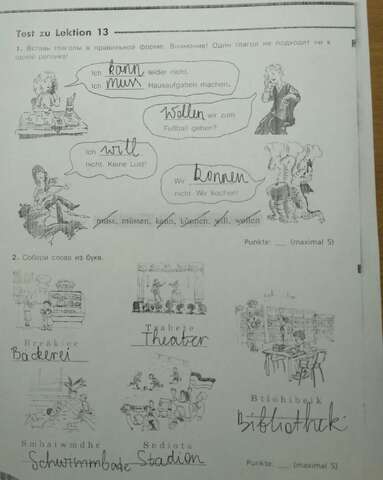 Test zu Lektion 13
1. Вставь глаголы в правильной форме. Внимание! Один глагол не подходит ни к
одной реплике!
Ich kann leider nicht.
Ich muss Hausaufgaben machen.
Wollen wir zum
Fußball gehen?
Ich will
nicht. Keine Lust!
Wir können
nicht. Wir kochen!
muss, müssen, kann, können, will, wollen
Punkte: ___ (maximal 5)
2. Собери слова из букв.
Theater
Bäckerei
Btiohibelk
Bibliothek
Smhaiwmdhc
Sndiota
Schwimmbade Stadion
Punkte: ___ (maximal 5)